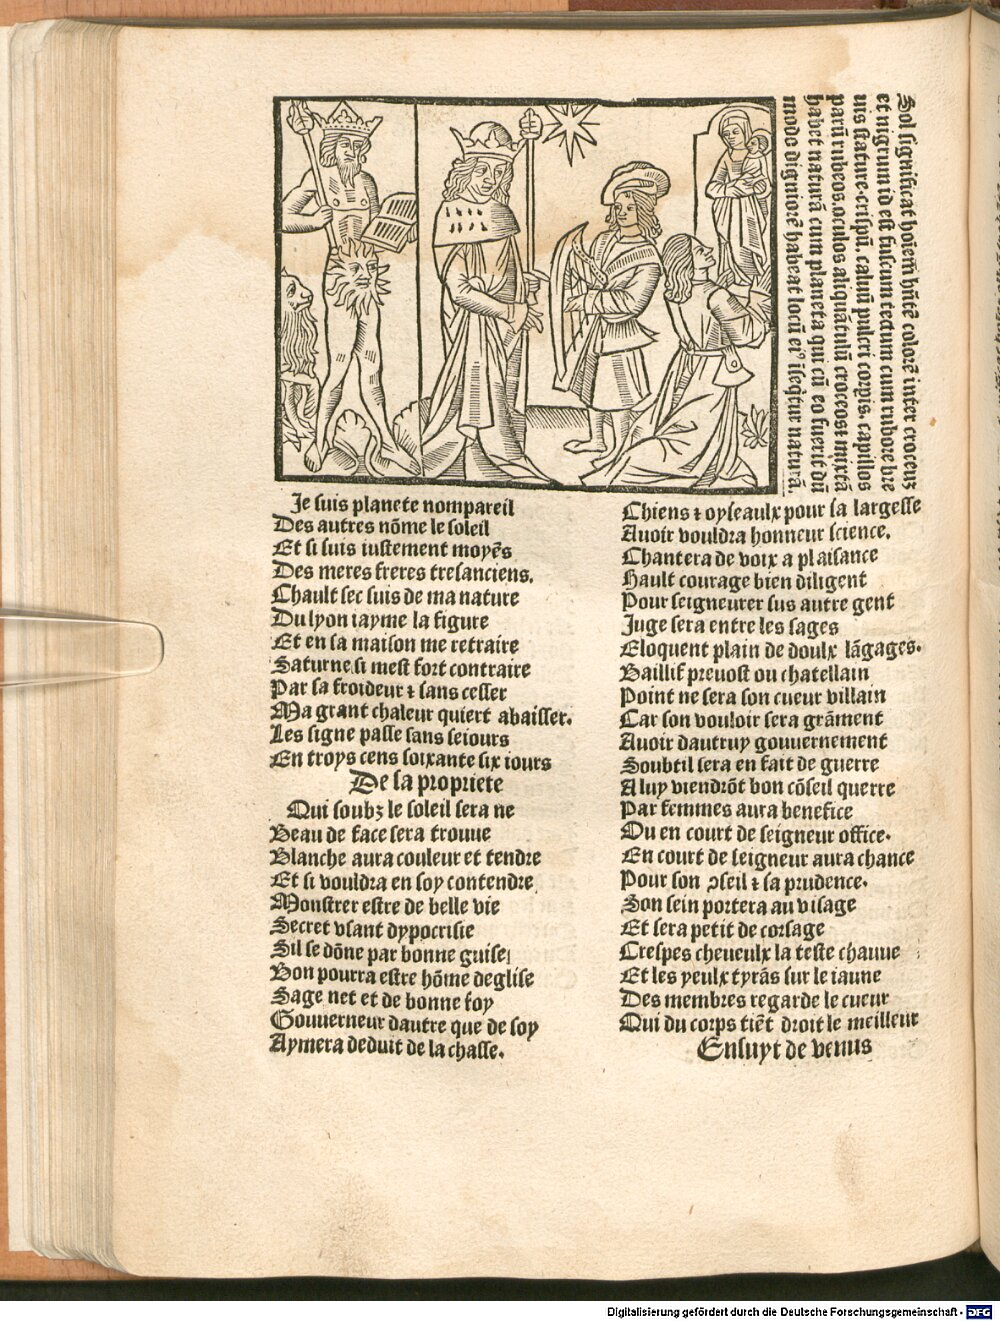 Sol significat hoīem hñtē colorē inter croceuȝ
et nigrum id est fuscum tectum cum rubore bre
uis stature. crispū. caluū pulcri corpis. capillos
parū rubeos. oculos aliquātulū croceos ⁊ mixtā
habet naturā cum planeta qui cū eo fuerit dū
modo digniorē habeat locū eiꝰ īseqͥtur naturā.
Je suis planete nompareil
Des autres nōme le soleil
Et si suis iustement moyēs
Des meres freres tresanciens.
Chault sec suis de ma nature
Du lyon iayme la figure
Et en sa maison me retraire
Saturne si mest fort contraire
Par sa froideur ⁊ sans cesser
Ma grant chaleur quiert abaisser.
Les signe passe sans seiours
En troys cens soixante six iours
De la propriete
Qui soubȝ le soleil sera ne
Beau de face sera trouue
Blanche aura couleur et tendre
Et si vouldra en soy contendre
Monstrer estre de belle vie
Secret vsant dypocrisie
Sil se dōne par bonne guise
Bon pourra estre hōme deglise
Sage net et de bonne foy
Gouuerneur dautre que de soy
Aymera deduit de la chasse.
Chiens ⁊ oyseaulx pour sa largesse
Auoir vouldra honneur science.
Chantera de voix a plaisance
Hault courage bien diligent
Pour seigneurer sus autre gent
Juge sera entre les sages
Eloquent plain de doulx lāgages.
Baillif preuost ou chatellain
Point ne sera son cueur villain
Car son vouloir sera grāment
Auoir dautruy gouuernement
Soubtil sera en fait de guerre
A luy viendrōt bon cōseil querre
Par femmes aura benefice
Ou en court de seigneur office.
En court de seigneur aura chance
Pour son ↄseil ⁊ sa prudence.
Son sein portera au visage
Et sera petit de corsage
Crespes cheueulx la teste chauue
Et les yeulx tyrās sur le iaune
Des membres regarde le cueur
Qui du corps tiēt droit le meilleur
Ensuyt de venus
Digitalisierung gefördert durch die Deutsche Forschungsgemeinschaft - DFG